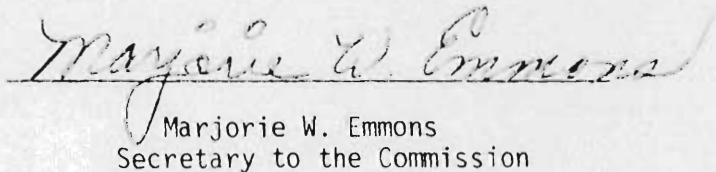 Marjorie W. Emmons
Marjorie W. Emmons
Secretary to the Commission